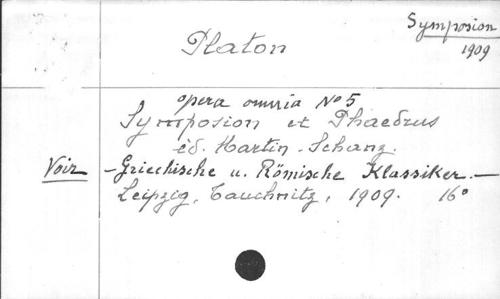 Symposion
1909
Platon
opera omnia No 5
Symposion et Phaedrus
éd. Martin Schanz.
Voir - Griechische u. Römische Klassiker. -
Leipzig, Tauchnitz, 1909. 16°